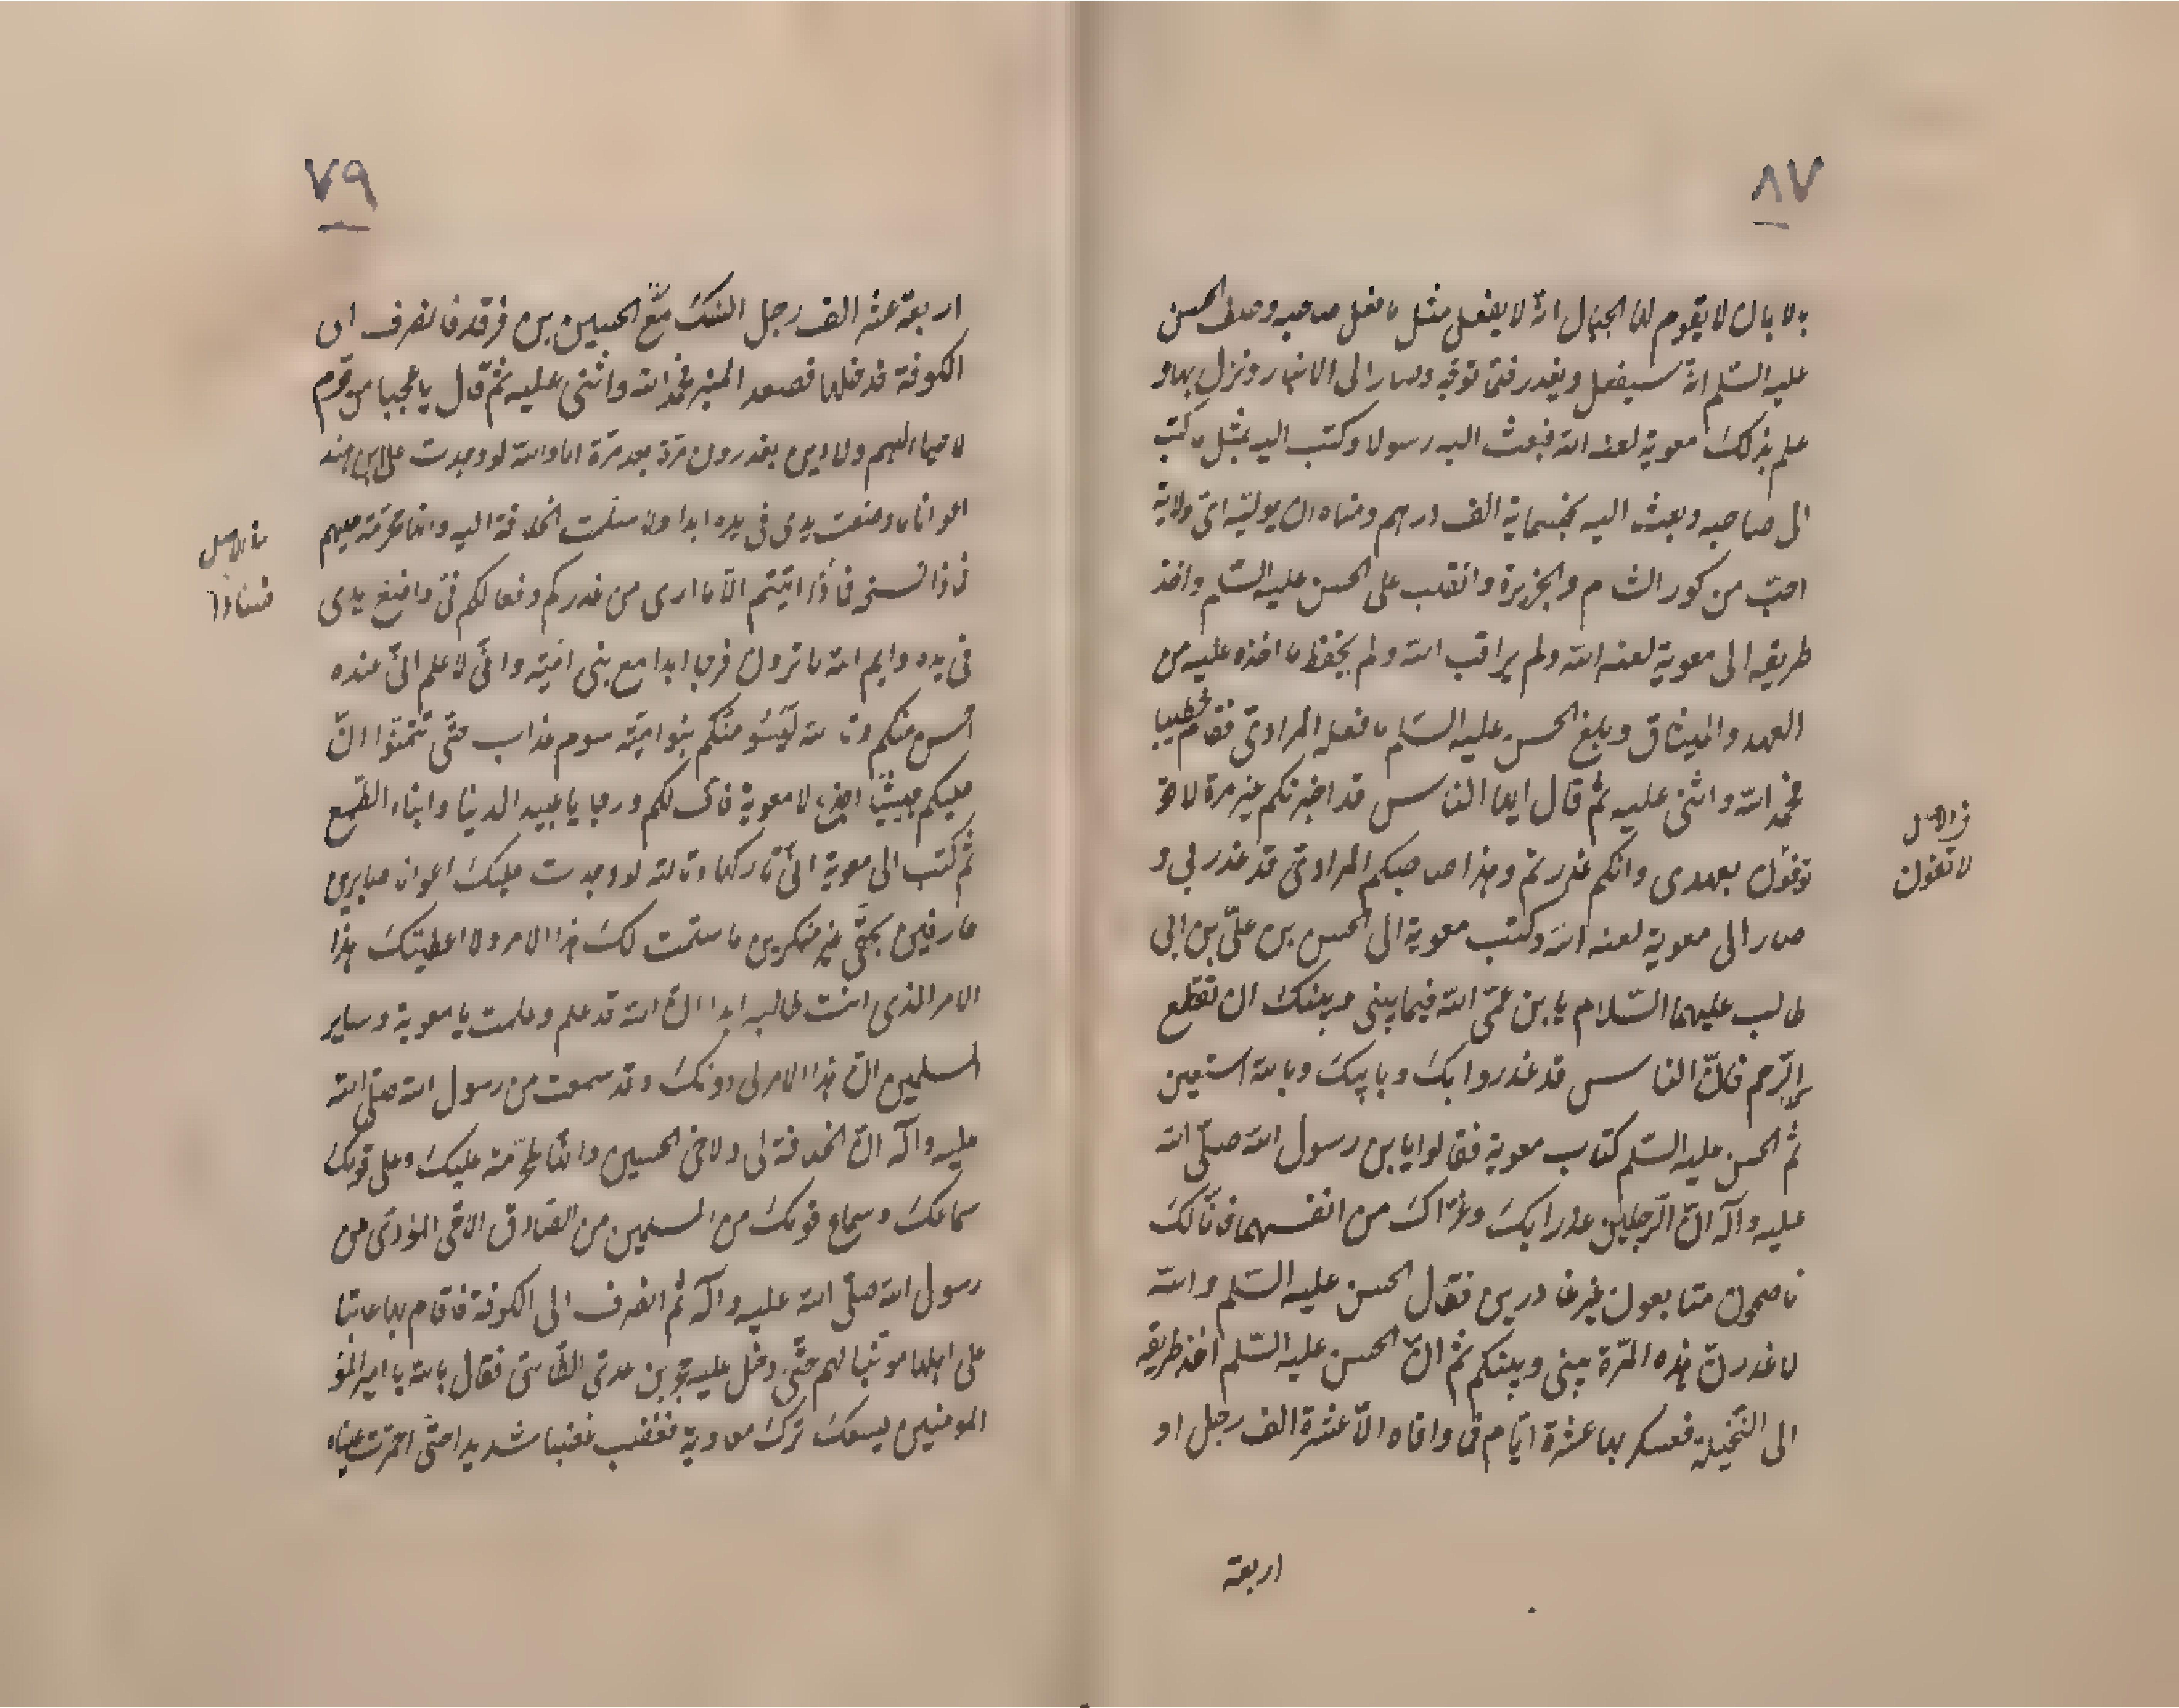 ٨٧
بالايمان لا يقوم لها الجبال انه لا يفعل مثل ما فعل صاحبه وحلف الحسن
عليه السّلم انه سيفعل ويغدر فمّا توجّه وصار الى الانبار ونزل بها و
علم بذلك معوية لعنه الله فبعث اليه رسولا وكتب اليه بمثل ما كتب
الى صاحبه وبعث اليه بخمسماية الف درهم ومنّاه ان يوليّه اىّ ولاية
احبّ من كور الشام والجزيرة وانقلب على الحسن عليه السّلم واخذ
طريقه الى معوية لعنه الله ولم يراقب الله ولم يحفظ ما اخذه عليه من
العهد والميثاق وبلغ الحسن عليه السّلم ما فعله المرادىّ فقام خطيبا
فحمد الله واثنى عليه ثم قال ايها الناس قد اخبرتكم غير مرة لا
توفون بعهدى وانكم غدرتم وهذا صاحبكم المرادىّ قد غدر بى و
صار الى معوية لعنه الله وكتب معوية الى الحسن بن علىّ بن ابى
طالب عليهما السّلام يابن عمّى الله فيما بينى وبينك ان تقطع
الرّحم فانّ الناس قد غدروا بك وبابيك وبالله استعين
ثم الحسن عليه السّلم كتاب معوية فقالوا يابن رسول الله صلّى الله
عليه وآله انّ الرّجلين غدرا بك وغرّاك من انفسهما فانّا لك
ناصحون متابعون غير غادرين فقال الحسن عليه السّلم والله
لاغدرنّ هذه المرّة بينى وبينكم ثم انّ الحسن عليه السّلم اخذ طريقه
الى النّخيلة فعسكر بها عشرة ايّام فما وافاه الّا عشرة الف رجل او
فى الاصل
لا تفون
اربعة
٧٩
اربعة عشر الف رجل الشكّ من الحسين بن فرقد فانصرف الى
الكوفة فدخلها فصعد المنبر فحمد الله واثنى عليه ثمّ قال يا عجبا من قوم
لا حياء لهم ولا دين يغدرون مرّة بعد مرّة اما والله لو وجدت على ابن هند
اعوانا ما وضعت يدى فى يده ابدا ولا سلّمت الخلافة اليه وانها محرّمة عليهم
فاذا انيتم الّا ما ارى من غدركم وفعالكم فىّ واضع يدى
فى يده وايم الله ما ترون فرجا ابدا مع بنى اميّة وانّى لاعلم انّى عنده
احسن منكم وتالله ليسومنّكم بنو اميّة سوم عذاب حتّى تتمنّوا انّ
عليكم حبشيّا اجدع لا معوية فاف لكم وترحا يا عبيد الدنيا وابناء الطّمع
ثم كتب الى معوية انّى تاركها وتالله لو وجدت عليك اعوانا صابرين
عارفين بحقّى غير منكرين ما سلّمت لك هذا الامر ولا اعطيتك هذا
الامر الذى انت طالبه ابدا انّ الله قد علم وعلمت يا معوية وساير
المسلمين انّ هذا الامر لى دونك وقد سمعت من رسول الله صلّى الله
عليه وآله انّ الخلافة لى ولاخى الحسين وانّها لمحرّمة عليك وعلى قومك
سماعك وسماع قومك من المسلمين من الصّادق الامّى المؤدّى عن
رسول الله صلّى الله عليه وآله ثم انصرف الى الكوفة فاقام بها عاتبا
على اهلها مونّبا لهم حتّى دخل عليه حجر بن عدىّ الطّائىّ فقال بالله يا امير المو
المومنين يسعك ترك معاوية فغضب غضبا شديدا حتّى احمرّت عيناه
فى الاصل